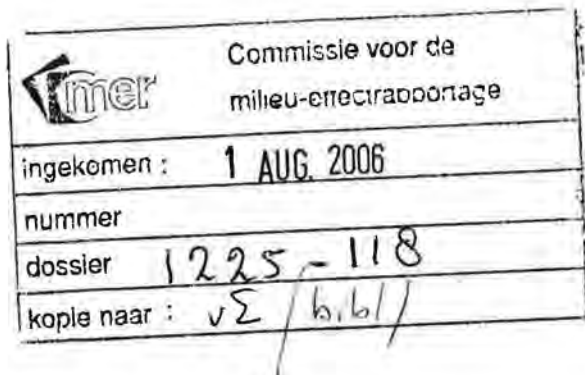 mer
Commissie voor de
milieu-effectrapportage
ingekomen : 1 AUG. 2006
nummer
dossier 1225-118
kopie naar : / bibl /